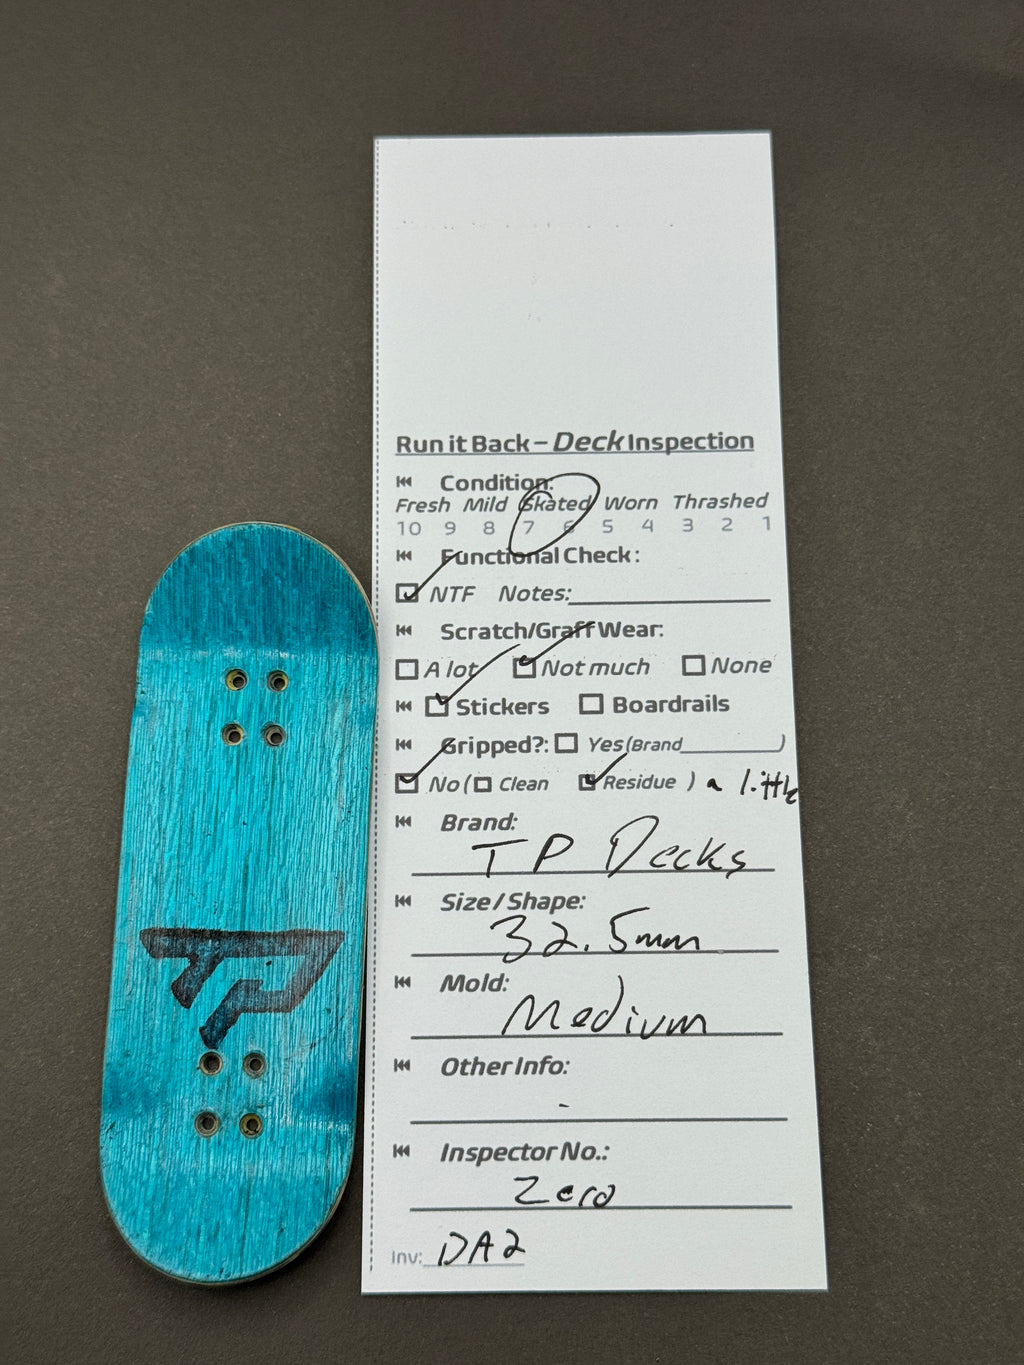 Run it Back – Deck Inspection
Condition:
Fresh Mild Skated Worn Thrashed
10 9 8 7 6 5 4 3 2 1
Functional Check:
NTF Notes:
Scratch/Graff Wear:
A lot Not much None
Stickers Boardrails
Gripped?: Yes (Brand )
No ( Clean Residue ) a little
Brand:
TP Decks
Size / Shape:
32.5mm
Mold:
Medium
Other Info:
-
Inspector No.:
Zero
Inv: DA2
TP